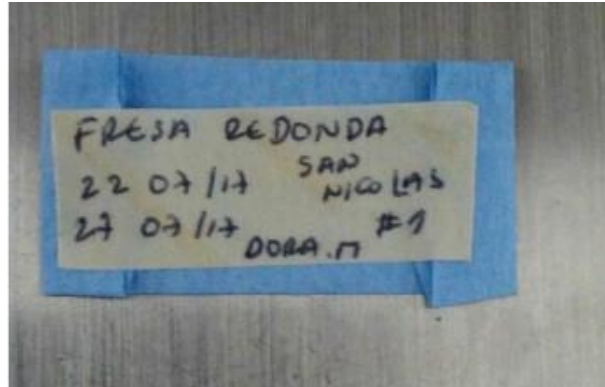 FRESA REDONDA
22 07/17 SAN NICOLAS
27 07/17 #1
DORA.M